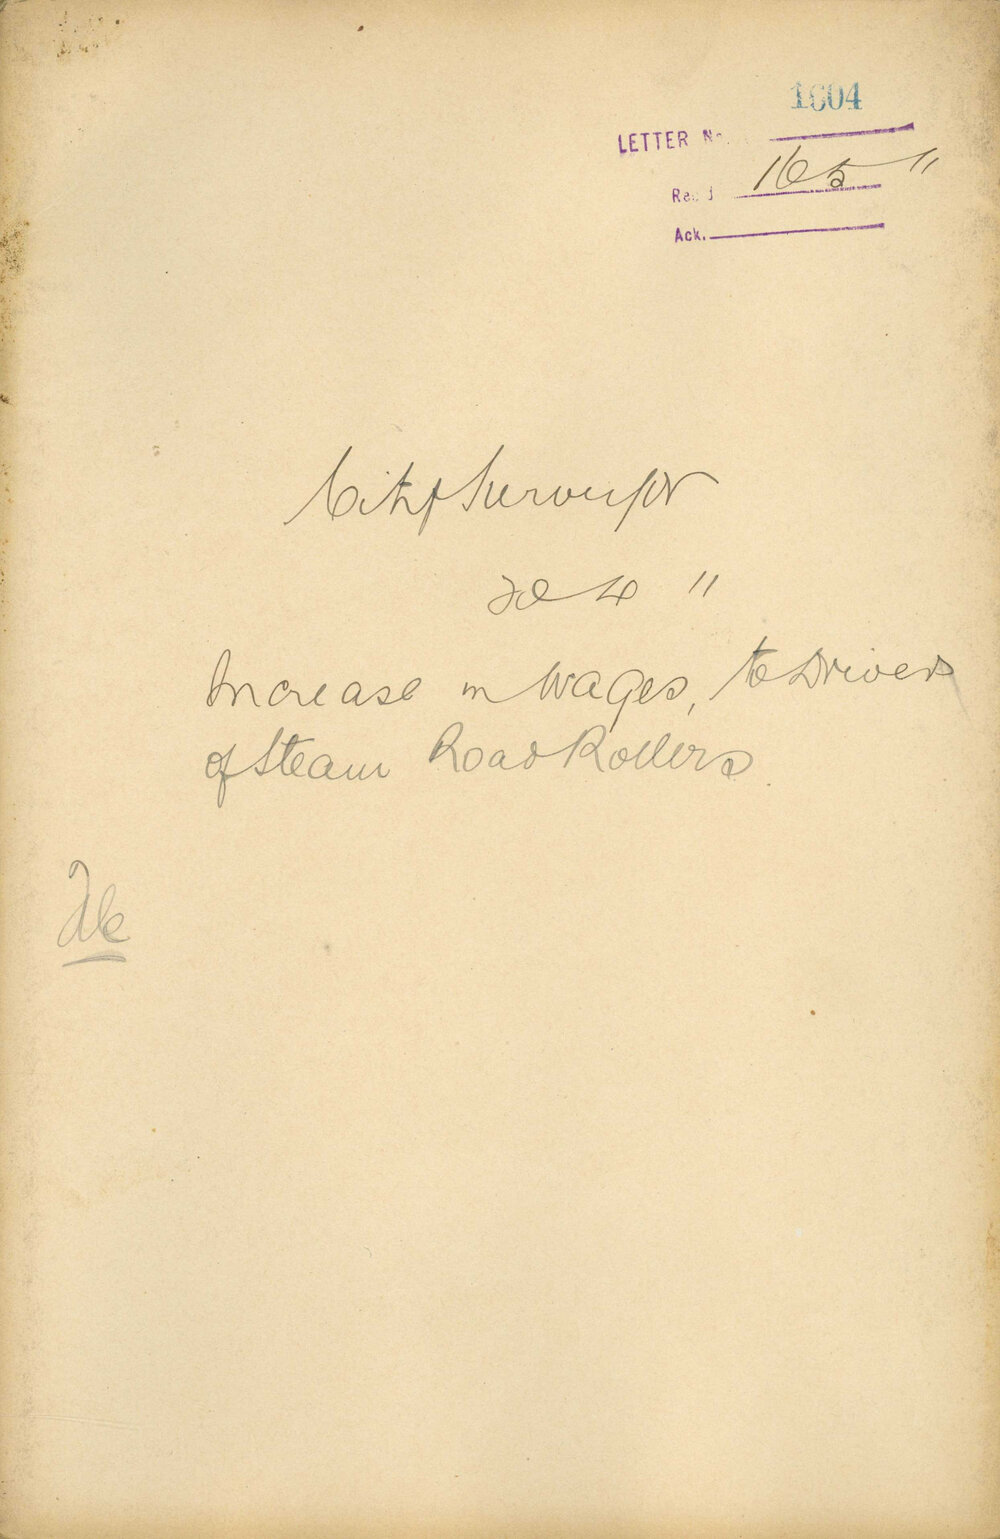 1604
LETTER No.
Rec'd 16 5 "
Ack.
City Surveyor
20 4 "
Increase in Wages, to Drivers
of Steam Road Rollers
File